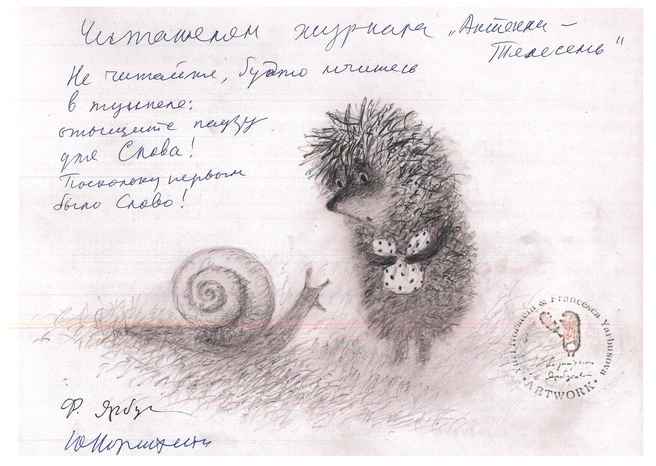 Читателям журнала „Антенна –
Телесемь"
Не читайте, будто мчитесь
в тунеле:
отыщите паузу
для Слова!
Поскольку первым
было Слово!
Yuri Norstein & Francesca Yarbusova
• ARTWORK •
Ф. Ярбус
Ю Норштейн